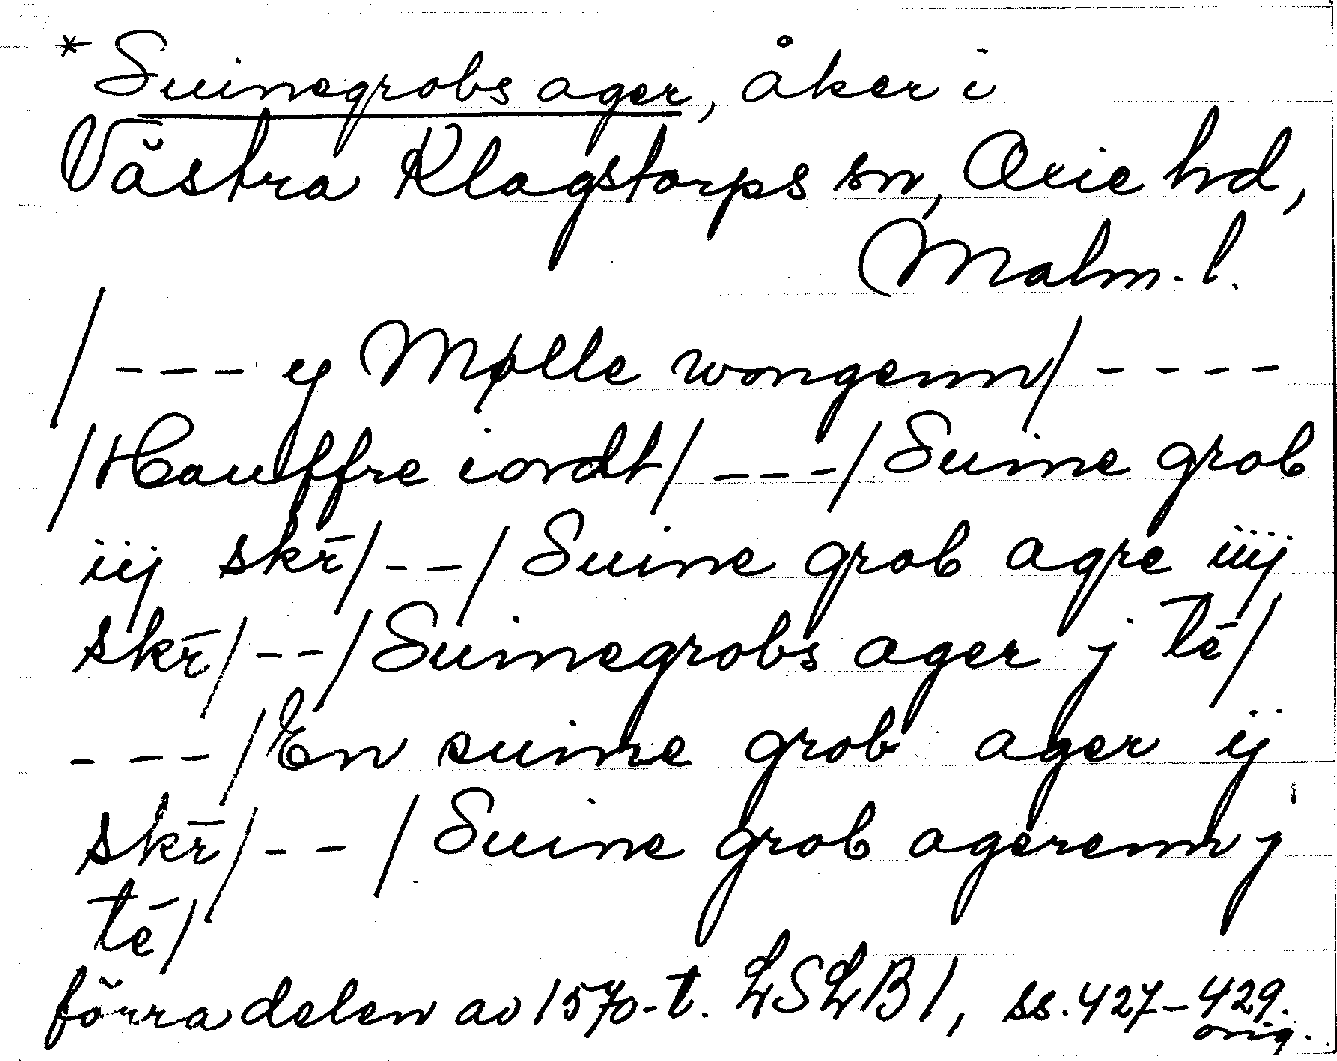 *Suinegrobs ager, åker i
Västra Klagstorps sn, Oxie hd,
Malm. l.
/--- ij Mølle wongenn/----
/Hauffre iordt/---/Suine grob
iij skr̄/--/Suine grob agre iiij
skr̄/--/Suinegrobs ager j tē/
---/En suine grob ager ij
skr̄/--/Suine grob agerenn j
tē/
förra delen av 1570-t. LSLB1, ss. 427-429.
orig.